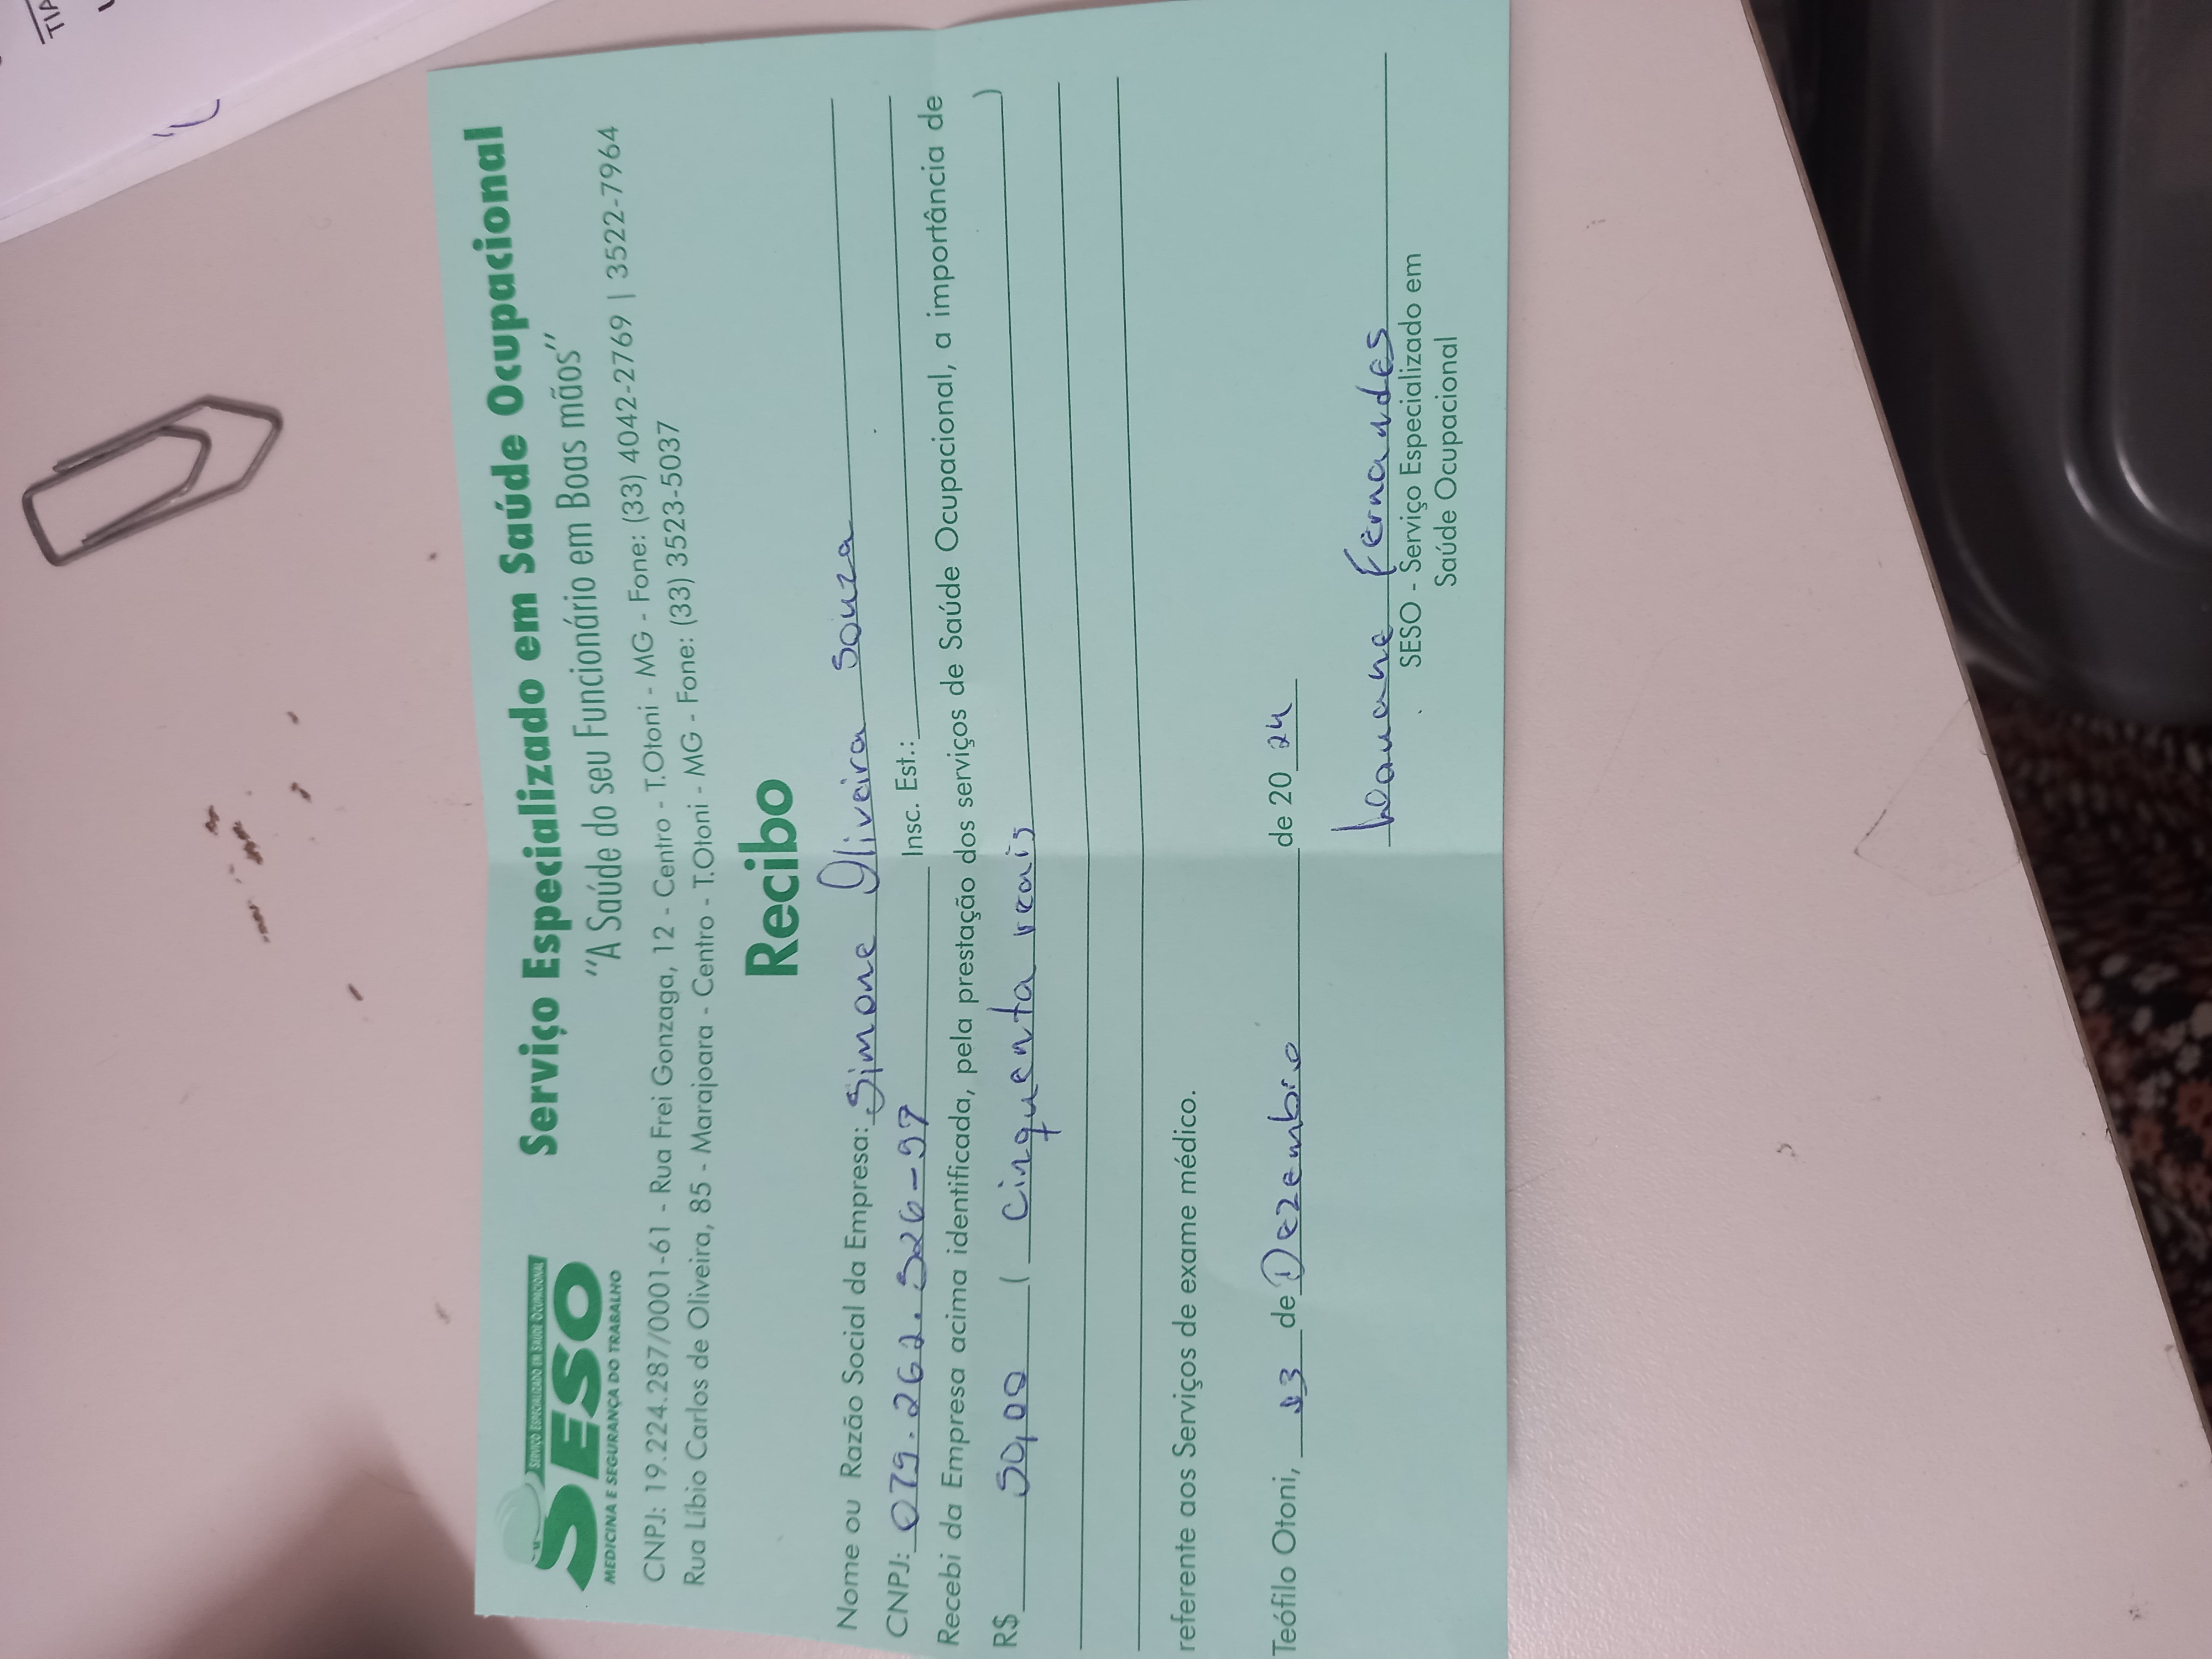 TIA
SERVIÇO ESPECIALIZADO EM SAÚDE OCUPACIONAL
SESO
MEDICINA E SEGURANÇA DO TRABALHO
Serviço Especializado em Saúde Ocupacional
"A Saúde do seu Funcionário em Boas mãos"
CNPJ: 19.224.287/0001-61 - Rua Frei Gonzaga, 12 - Centro - T.Otoni - MG - Fone: (33) 4042-2769 | 3522-7964
Rua Líbio Carlos de Oliveira, 85 - Marajoara - Centro - T.Otoni - MG - Fone: (33) 3523-5037
Recibo
Nome ou Razão Social da Empresa: Simone Oliveira Souza
CNPJ: Insc. Est.:
Recebi da Empresa acima identificada, pela prestação dos serviços de Saúde Ocupacional, a importância de
R$ 50,00 ( cinquenta reais )
referente aos Serviços de exame médico.
Teófilo Otoni, de Dezembro de 20 24
Fernandes
SESO - Serviço Especializado em
Saúde Ocupacional